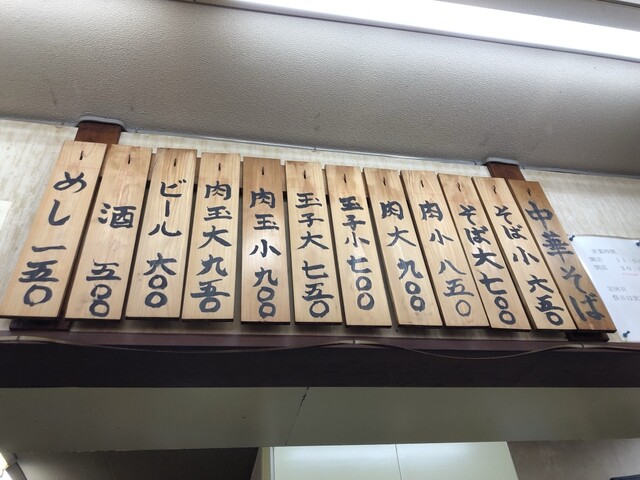 中華そば
そば小 六五〇
そば大 七〇〇
肉小 八五〇
肉大 九〇〇
玉子小 七〇〇
玉子大 七五〇
肉玉小 九〇〇
肉玉大 九五〇
ビール 六〇〇
酒 五〇〇
めし 一五〇